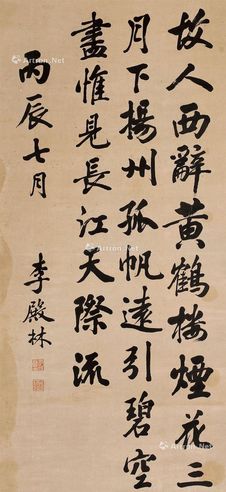 故人西辭黃鶴樓煙花三
月下揚州孤帆遠引碧空
盡惟見長江天際流
丙辰七月
李殿林
Artron.Net
Artron.Net
Artron.Net
Artron.Net